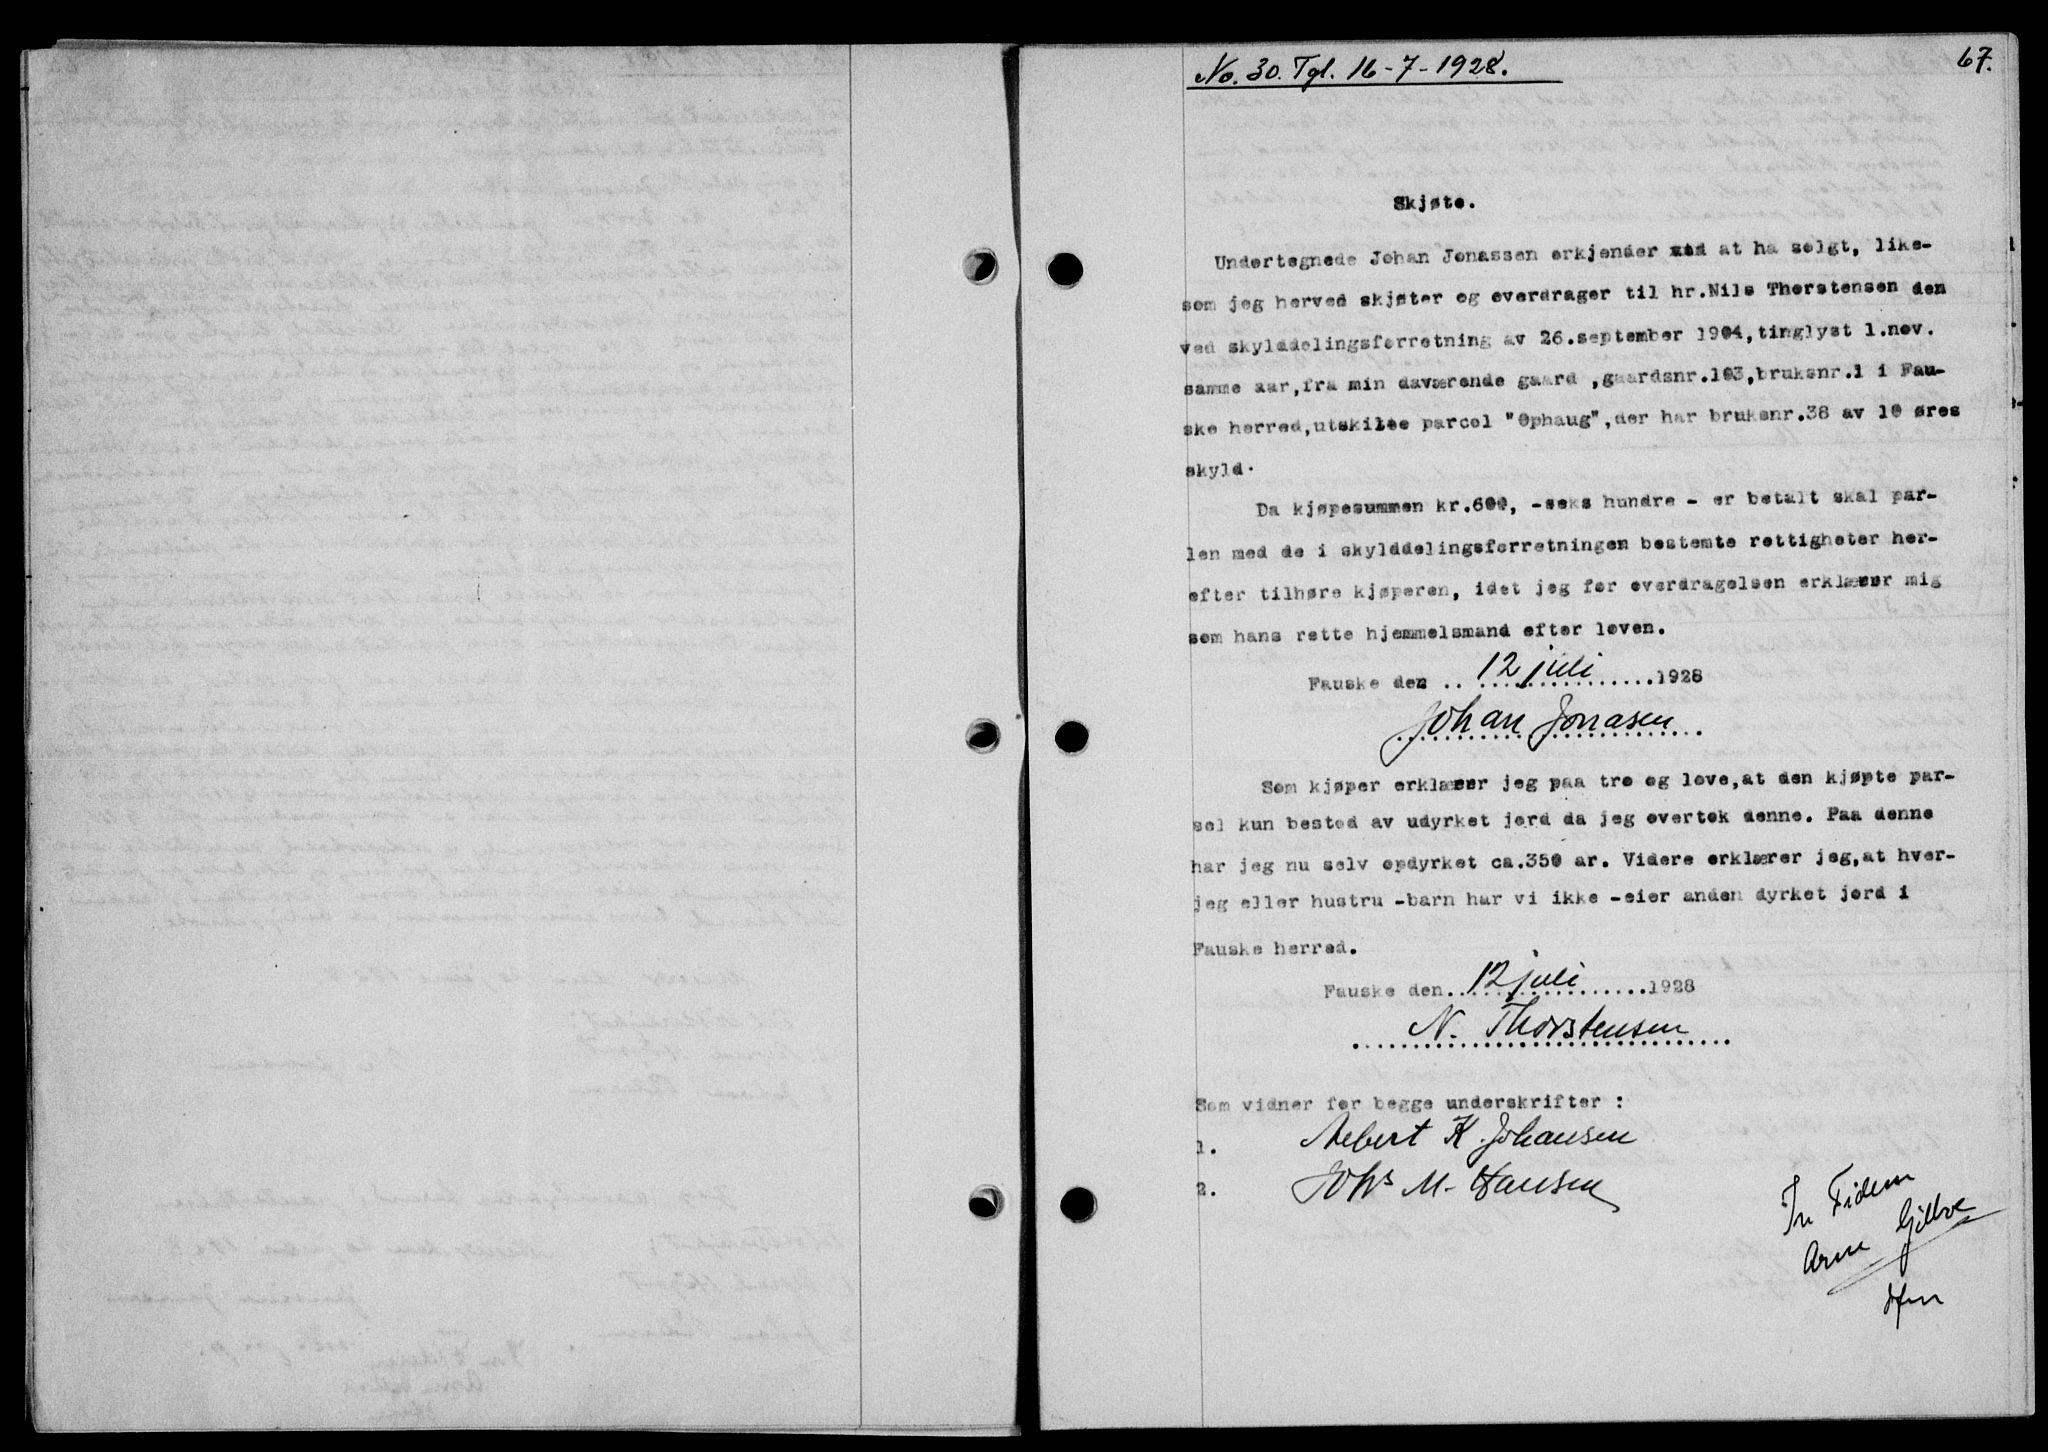 67.
No. 30. Tgl. 16-7-1928.
Skjøte.
Undertegnede Johan Jonassen erkjender at ha solgt, like-
som jeg herved skjøter og overdrager til hr.Nils Thorstensen den
ved skylddelingsforretning av 26.september 1904,tinglyst 1.nov.
samme aar,fra min daværende gaard ,gaardsnr.103,bruksnr.1 i Fau-
ske herred,utskilte parcel "Ophaug",der har bruksnr.38 av 10 øres
skyld.
Da kjøpesummen kr.600, -seks hundre - er betalt skal par-
len med de i skylddelingsforretningen bestemte rettigheter her-
efter tilhøre kjøperen, idet jeg for overdragelsen erklærer mig
som hans rette hjemmelsmand efter loven.
Fauske den .. 12 juli ..... 1928
Johan Jonasen
Som kjøper erklærer jeg paa tro og love,at den kjøpte par-
sel kun bestod av udyrket jord da jeg overtok denne. Paa denne
har jeg nu selv opdyrket ca.350 ar. Videre erklærer jeg,at hver-
jeg eller hustru -barn har vi ikke -eier anden dyrket jord i
Fauske herred.
Fauske den..12 juli.....1928
N. Thorstensen
Som vidner for begge underskrifter :
1. K. Johansen
2. Johs M. Hansen
In Fidem
Arne